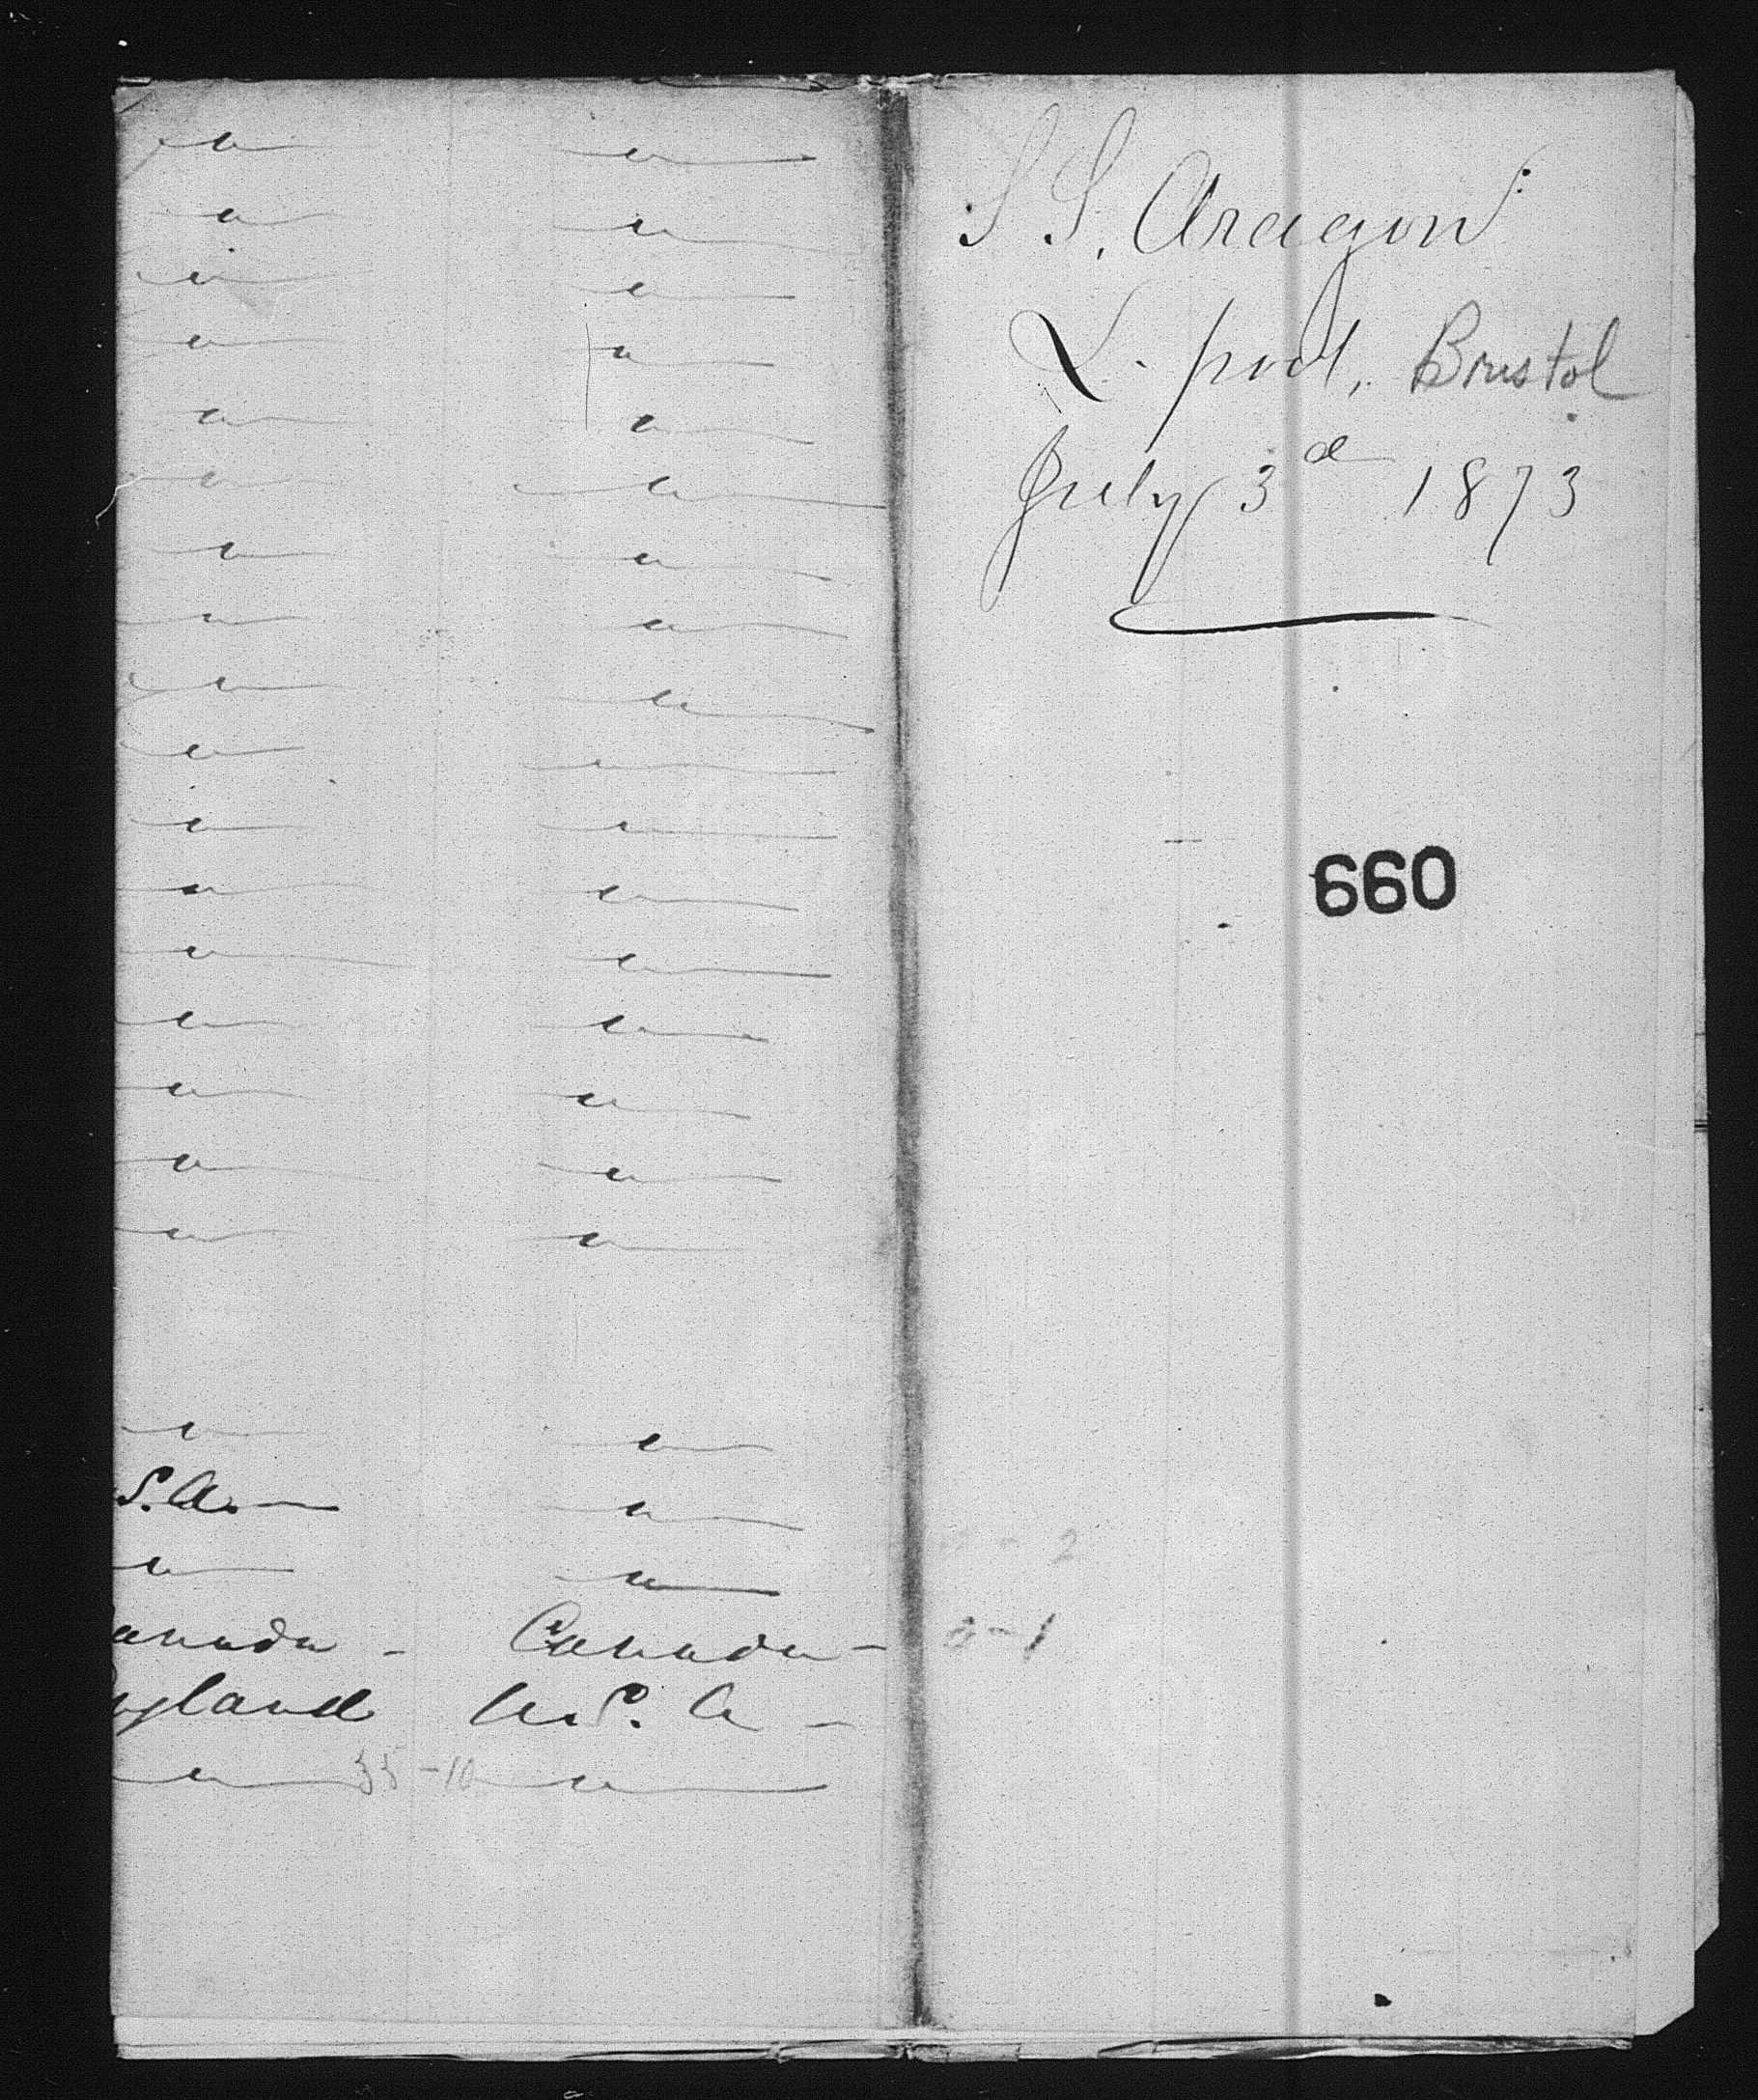 S S. Aragon
L. pool, Bristol
July 3d 1873
660
" "
" "
" "
" "
" "
" "
" "
" "
" "
" "
" "
" "
" "
" "
" "
" "
" "
" "
S. A. "
" "
anada - Canada - 2-1
gland U.S. A -
" 35-10 "